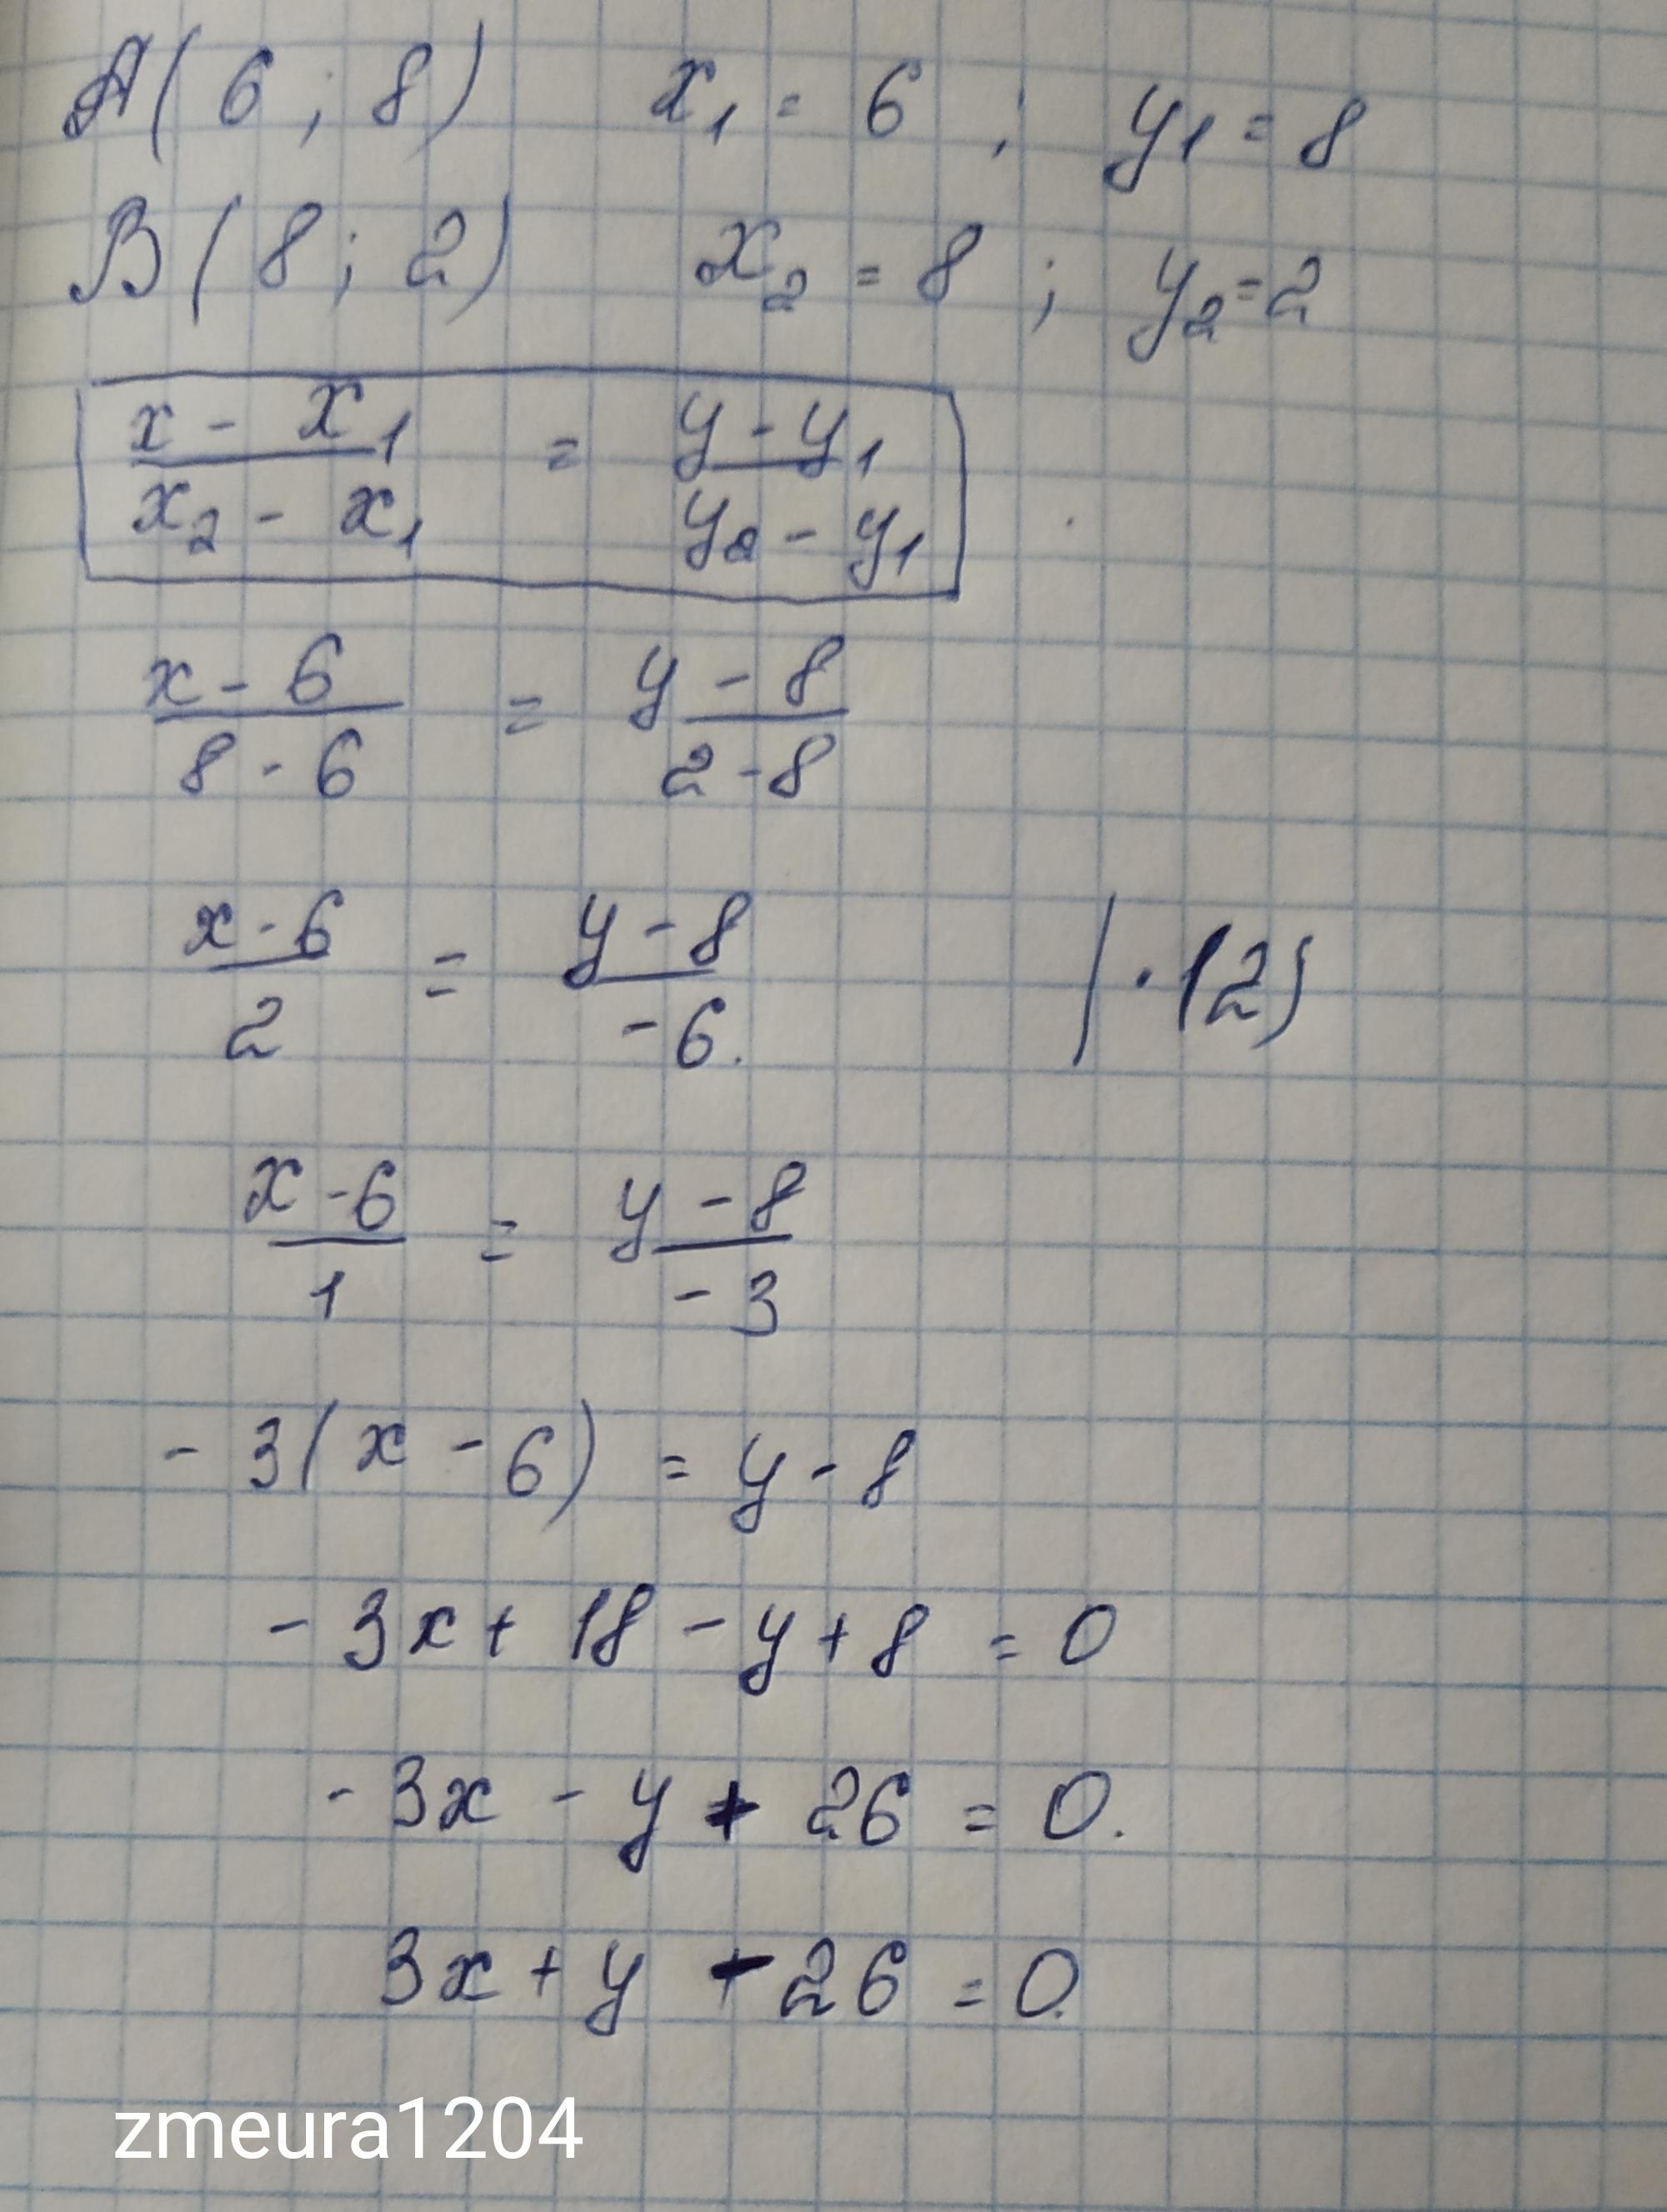 A( 6 ; 8) x₁ = 6 ; y₁ = 8
B( 8 ; 2) x₂ = 8 ; y₂ = 2
(x - x₁)/(x₂ - x₁) = (y - y₁)/(y₂ - y₁)
(x - 6)/(8 - 6) = (y - 8)/(2 - 8)
(x - 6)/2 = (y - 8)/-6. | · (2)
(x - 6)/1 = (y - 8)/-3
- 3(x - 6) = y - 8
- 3x + 18 - y + 8 = 0
- 3x - y + 26 = 0.
3x + y - 26 = 0.
zmeura1204